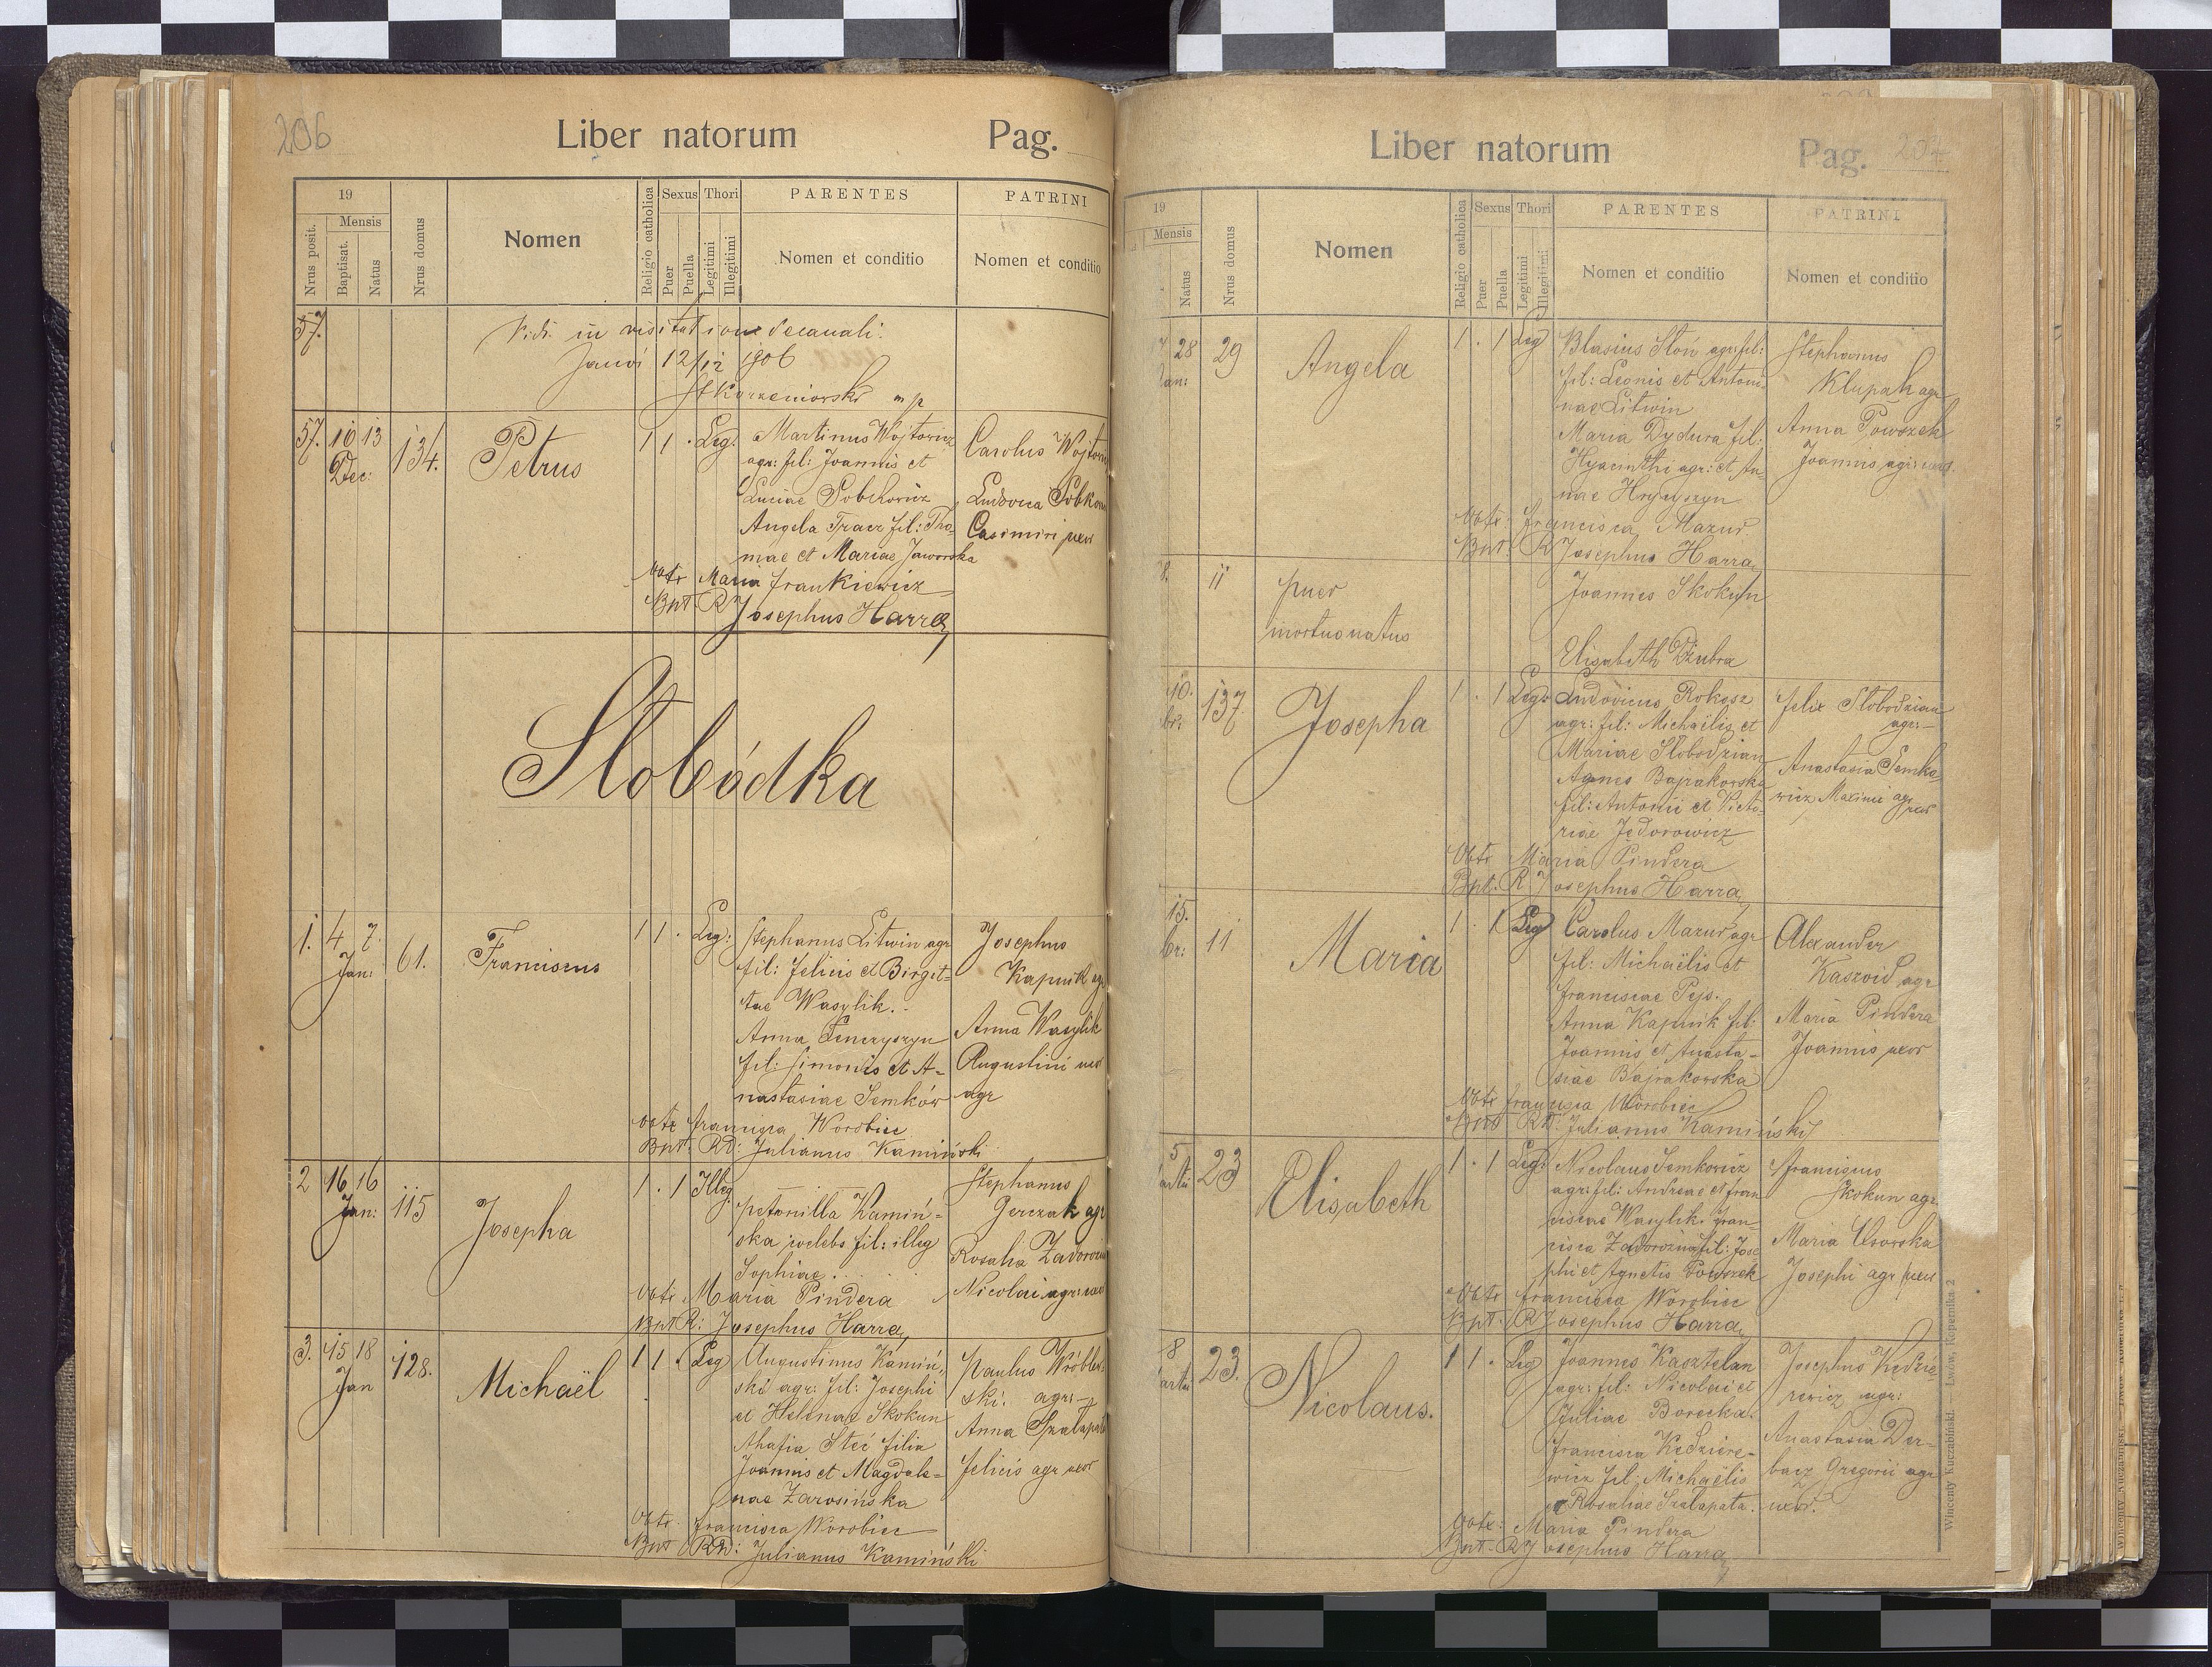 206
Liber natorum Pag.
19
Mensis
Nrus posit.
Baptisat.
Natus
Nrus domus
Nomen
Religio catholica
Sexus
Puer
Puella
Thori
Legitimi
Illegitimi
PARENTES
Nomen et conditio
PATRINI
Nomen et conditio
57.
Vidi in visitatione decanali.
Janów 12/12 1906
mp
57. 16 13 134. Petrus 1 1 . Leg.
Dec:
Martinus Wojtowicz
agr: fil: Joannis et
Luciae Sobkowicz
Angela Tracz fil: Tho-
mae et Mariae Jaworska
Carolus
Ludovica
Casimiri uxor
Obstr Maria Frankiewicz
Bpt. R Josephus Harra
Słobódka
1. 4 7. 61. Franciscus 1 1 . Leg:
Jan:
Stephanus Litwin agr
fil: Felicis et Birgit-
tae Wasylik.
Anna
fil: Simonis et A-
nastasiae Semków
Josephus
Kapnik agr
Anna Wasylik
Augustini uxor
agr
Obstr Francisca Worobiec
Bpt. RD: Julianus Kamiński
2 16 16 115 Josepha 1 . 1 Illeg
Jan:
Petronilla Kamiń-
ska coelebs fil: illeg
Sophiae.
Stephanus
Gerczak agr
Rosalia
Nicolai agr: uxor
Obstr. Maria Pindera
Bpt R: Josephus Harra
3. 15 18 128. Michaël 1 1 . Leg
Jan
Augustinus Kamiń-
ski agr: fil: Josephi
et Helenae Skokun
Ahafia Steć filia
Joannis et Magdale-
nae Zarosińska
Paulus Wróblew-
ski. agr:
Anna
Felicis agr uxor
Obstr. Francisca Worobiec
Bpt RD: Julianus Kamiński
Liber natorum Pag. 207
19
Mensis
Natus
Nrus domus
Nomen
Religio catholica
Sexus
Puer
Puella
Thori
Legitimi
Illegitimi
PARENTES
Nomen et conditio
PATRINI
Nomen et conditio
28 29 Angela 1 . 1 Leg
Jan:
Blasius Słoń agr fil:
fil: Leonis et Antoni-
nae Litwin
Maria Dydura fil:
Hyacinthi agr: et An-
nae
Stephanus
Klupak agr
Anna Powszek
Joannis agr: uxor.
Obstr. Francisca Mazur
Bpt. R Josephus Harra
8. 11 puer
mortuo natus
Joannes Skokun
Elisabeth Dziubra
10. 137. Josepha 1 . 1 Leg:
br:
Ludovicus Rokosz
agr: fil: Michaëlis et
Mariae Słobodzian
Agnes Bajrakowska
fil: Antonii et Victo-
riae Fedorowicz
Felix Słobodzian
agr:
Anastasia Semko-
wicz Maximi agr
uxor
Obstr Maria Pindera
Bpt. R Josephus Harra
15. 11 Maria 1 . 1 Leg
br:
Carolus Mazur agr
fil: Michaëlis et
Franciscae Pejs.
Anna Kapnik fil:
Joannis et Anasta-
siae Bajrakowska
Alexander
Kaszoid agr
Maria Pindera
Joannis uxor
Obstr Francisca Worobiec
Bpt RD: Julianus Kamiński
5 23 Elisabeth 1 . 1 Leg:
Nicolaus Semkowicz
agr: fil: Andreae et Fran-
ciscae Wasylik. Fran-
cisca Zadorożna fil: Jose
phi et Agnetis Powszek
Franciscus
Skokun agr.
Maria
Josephi agr uxor
Obstr Francisca Worobiec
Bpt. R Josephus Harra
8 23. Nicolaus. 1 1 . Leg
Joannes Kasztelan
agr: fil: Nicolai et
Juliae Borecka.
Francisca Kędziere-
wicz fil: Michaëlis
et Rosaliae Szałapata.
Josephus Kędzie-
rewicz agr:
Anastasia Der-
bacz Gregorii agr
uxor.
Obstr: Maria Pindera
Bpt. R Josephus Harra
Wincenty Kuczabiński. — Lwów, Kopernika 2